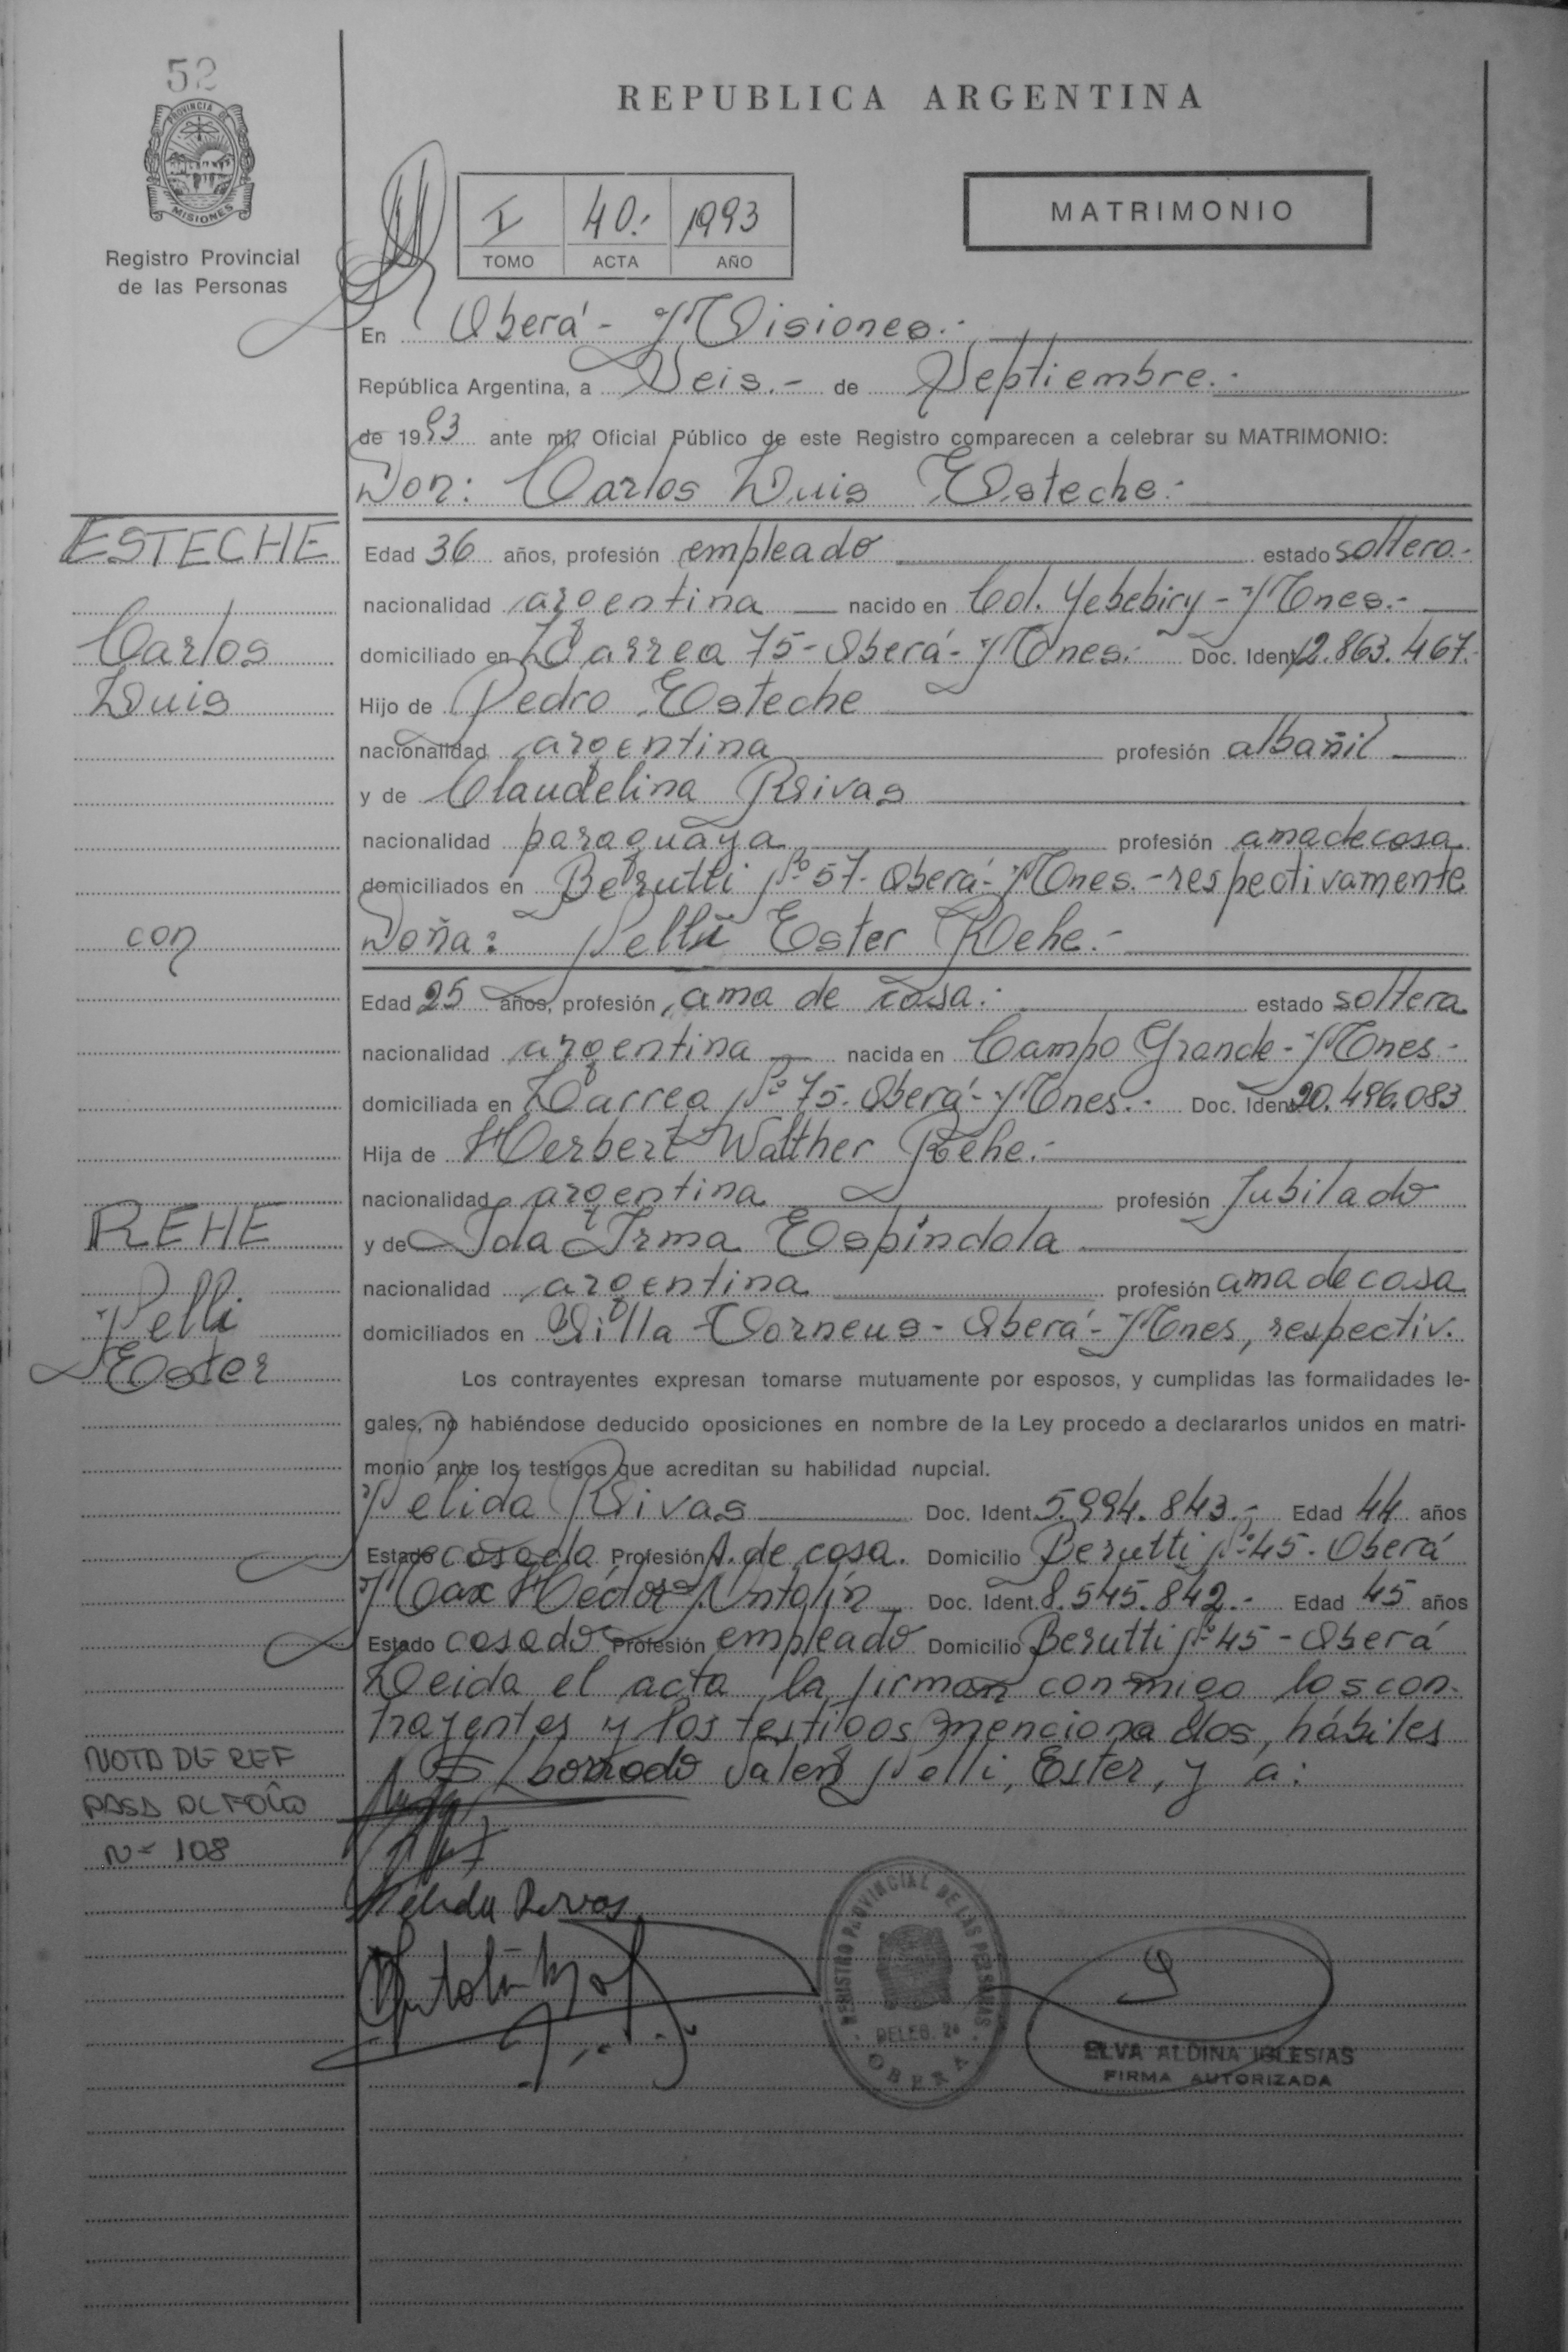 52
PROVINCIA DE
MISIONES
Registro Provincial
de las Personas
REPUBLICA ARGENTINA
I 40.- 1993
TOMO ACTA AÑO
MATRIMONIO
En Oberá - Misiones.-
República Argentina, a Seis.- de Septiembre.-
de 1993 ante mí, Oficial Público de este Registro comparecen a celebrar su MATRIMONIO:
Don: Carlos Luis Esteche.-
ESTECHE
Carlos
Luis
Edad 36 años, profesión empleado estado soltero.-
nacionalidad argentina nacido en Col. Yebebiry - Mnes.-
domiciliado en Larrea 75 - Oberá - Mnes.- Doc. Ident. 12.863.467.-
Hijo de Pedro Esteche
nacionalidad argentina profesión albañil
y de Claudelina Rivas
nacionalidad paraguaya profesión ama de casa
domiciliados en Berutti Nº 57 - Oberá - Mnes. - respectivamente
con
Doña: Nelli Ester Rehe.-
Edad 25 años, profesión ama de casa.- estado soltera
nacionalidad argentina nacida en Campo Grande - Mnes.-
domiciliada en Larrea Nº 75 - Oberá - Mnes.- Doc. Ident. 20.496.083
Hija de Herbert Walther Rehe.-
nacionalidad argentina profesión Jubilado
REHE
Nelli
Ester
y de Ida Irma Espíndola
nacionalidad argentina profesión ama de casa
domiciliados en Villa Torneus - Oberá - Mnes, respectiv.
Los contrayentes expresan tomarse mutuamente por esposos, y cumplidas las formalidades le-
gales, no habiéndose deducido oposiciones en nombre de la Ley procedo a declararlos unidos en matri-
monio ante los testigos que acreditan su habilidad nupcial.
Nélida Rivas Doc. Ident. 5.994.843.- Edad 44 años
Estado casada Profesión A. de casa. Domicilio Berutti Nº 45 - Oberá
Max Héctor Antolín Doc. Ident. 8.545.842.- Edad 45 años
Estado casado Profesión empleado Domicilio Berutti Nº 45 - Oberá
Leida el acta la firman conmigo los con-
trayentes y los testigos mencionados, hábiles
S/ borrado Valen Nelli, Ester, y a:
NOTA DE REF
PASA AL FOLIO
Nº 108
Nelida Rivas
Antolin
REGISTRO PROVINCIAL DE LAS PERSONAS
DELEG. 2ª
OBERA
ELVA ALDINA IGLESIAS
FIRMA AUTORIZADA